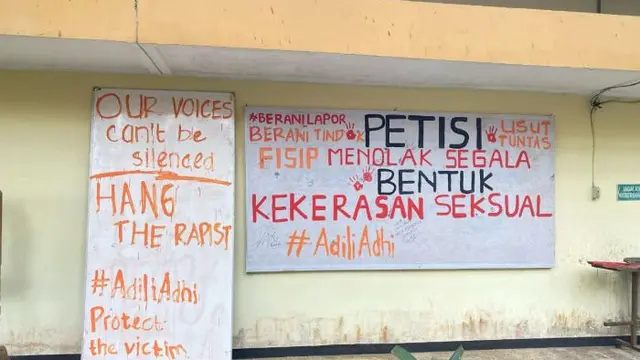 OUR VOICES
can't be
silenced
HANG
THE RAPIST
#AdiliAdhi
Protect
the victim
#BERANILAPOR
BERANI TINDAK
PETISI
USUT
TUNTAS
FISIP MENOLAK SEGALA
BENTUK
KEKERASAN SEKSUAL
#AdiliAdhi